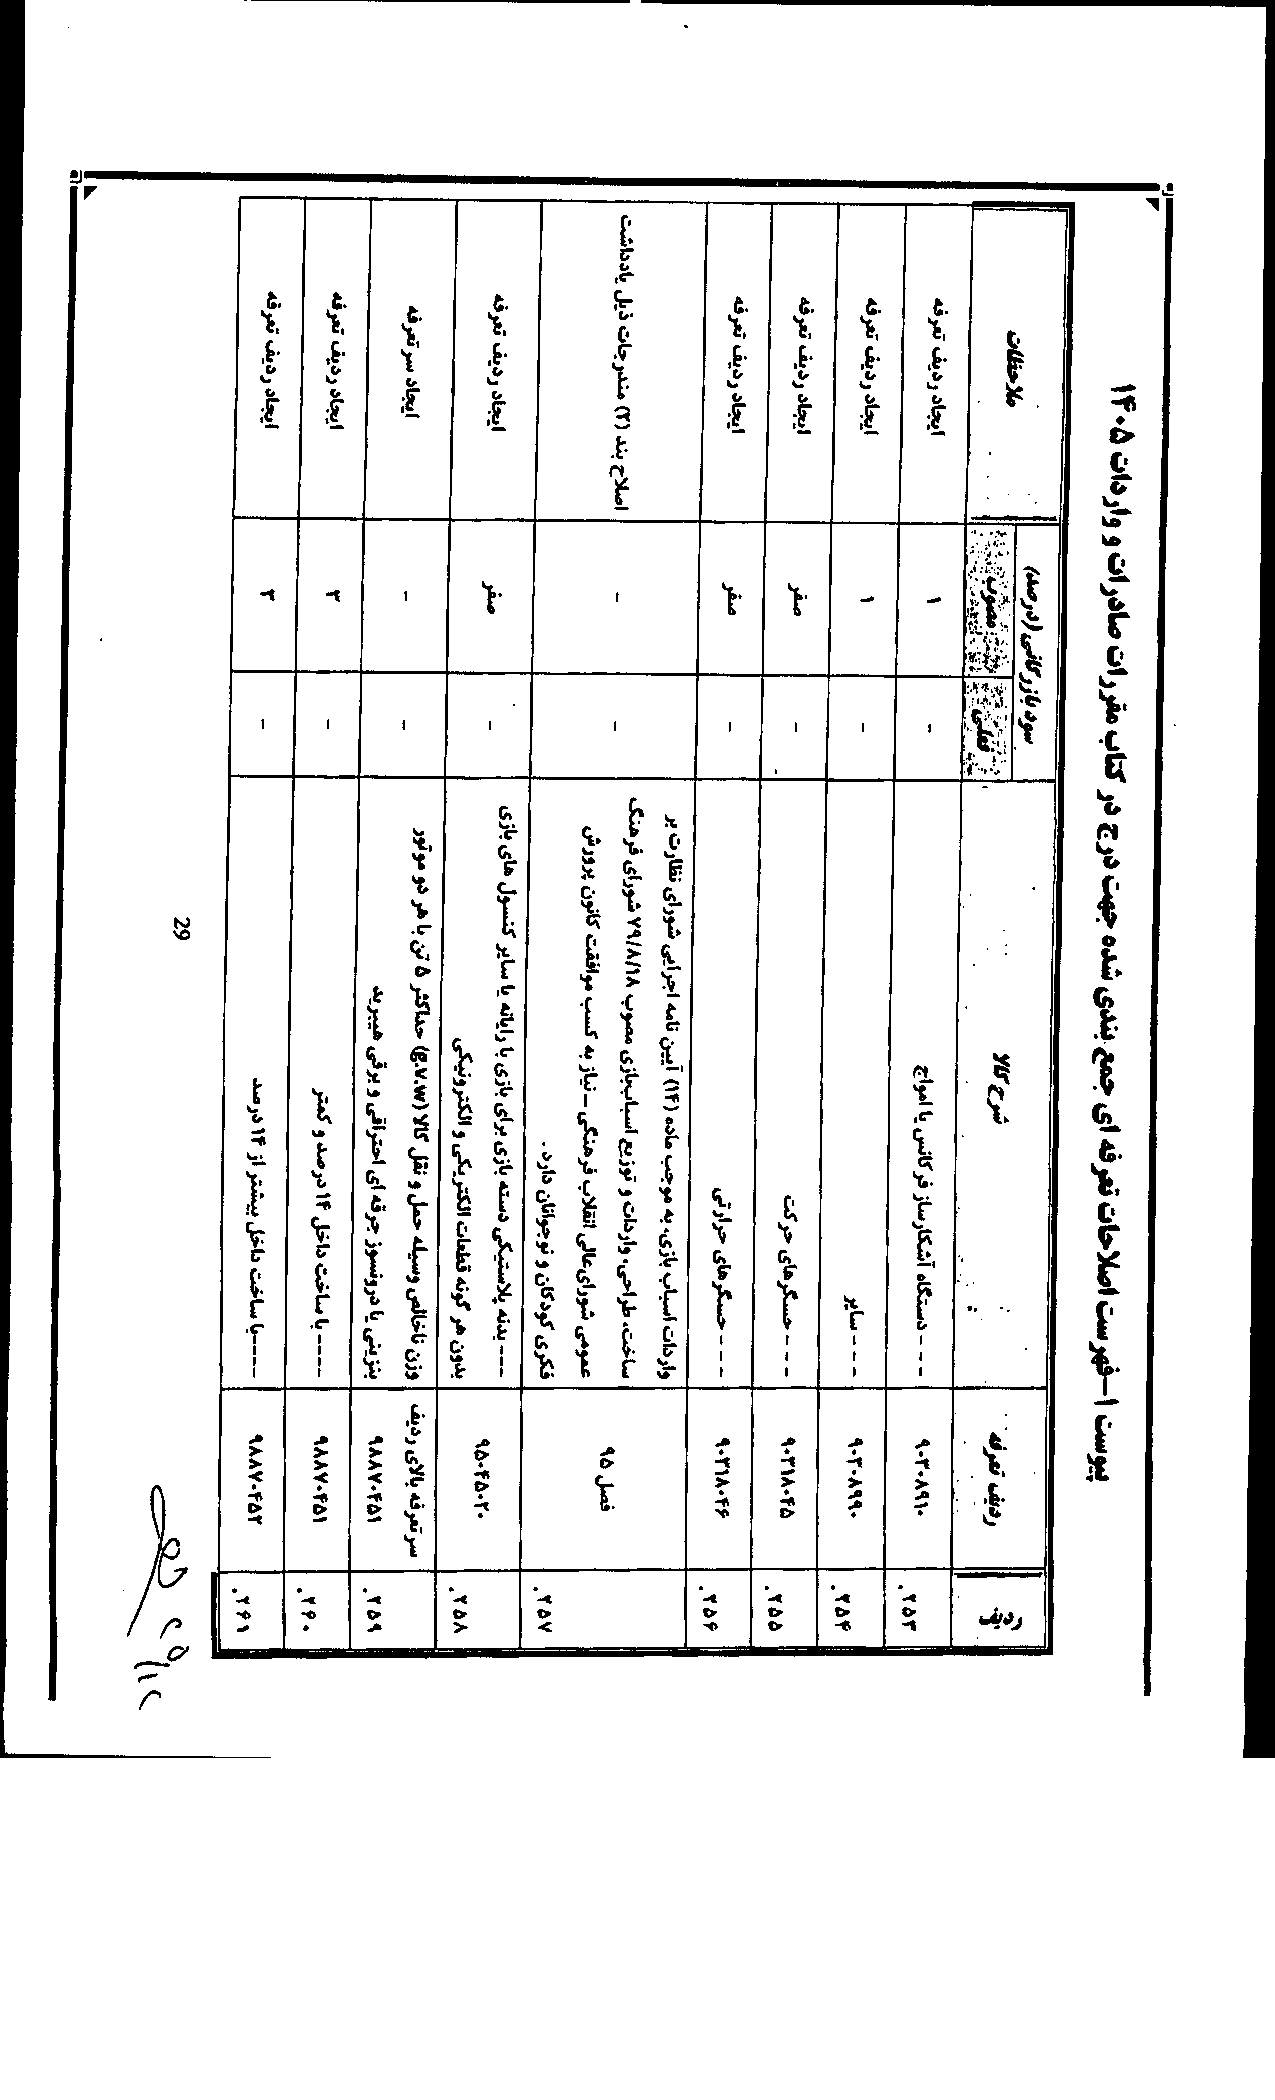 پیوست ۱-فهرست اصلاحات تعرفه ای جمع بندی شده جهت درج در کتاب مقررات صادرات و واردات ۱۴۰۵
ردیف ردیف تعرفه شرح کالا سود بازرگانی (درصد) ملاحظات
فعلی مصوب
۲۵۳. ۹۰۳۰۸۹۱۰ - - - دستگاه آشکارساز فرکانس یا امواج - ۱ ایجاد ردیف تعرفه
۲۵۴. ۹۰۳۰۸۹۹۰ - - - سایر - ۱ ایجاد ردیف تعرفه
۲۵۵. ۹۰۳۱۸۰۴۵ - - - حسگرهای حرکت - صفر ایجاد ردیف تعرفه
۲۵۶. ۹۰۳۱۸۰۴۶ - - - حسگرهای حرارتی - صفر ایجاد ردیف تعرفه
۲۵۷. فصل ۹۵ واردات اسباب بازی، به موجب ماده (۱۴) آیین نامه اجرایی شورای نظارت بر
ساخت، طراحی، واردات و توزیع اسباب‌بازی مصوب ۷۹/۸/۱۸ شورای فرهنگ
عمومی شورای عالی انقلاب فرهنگی – نیاز به کسب موافقت کانون پرورش
فکری کودکان و نوجوانان دارد. - - اصلاح بند (۲) مندرجات ذیل یادداشت
۲۵۸. ۹۵۰۴۵۰۲۰ --- بدنه پلاستیکی دسته بازی برای بازی با رایانه یا سایر کنسول های بازی
بدون هر گونه قطعات الکتریکی و الکترونیکی - صفر ایجاد ردیف تعرفه
۲۵۹. سر تعرفه بالای ردیف
۹۸۸۷۰۴۵۱ وزن ناخالص وسیله حمل و نقل کالا (g.v.w) حداکثر ۵ تن با هر دو موتور
بنزینی یا درونسوز جرقه ای احتراقی و برقی هیبرید - - ایجاد سر تعرفه
۲۶۰. ۹۸۸۷۰۴۵۱ ----با ساخت داخل ۱۴ درصد و کمتر - ۳ ایجاد ردیف تعرفه
۲۶۱. ۹۸۸۷۰۴۵۲ ----با ساخت داخل بیشتر از ۱۴ درصد - ۳ ایجاد ردیف تعرفه
29